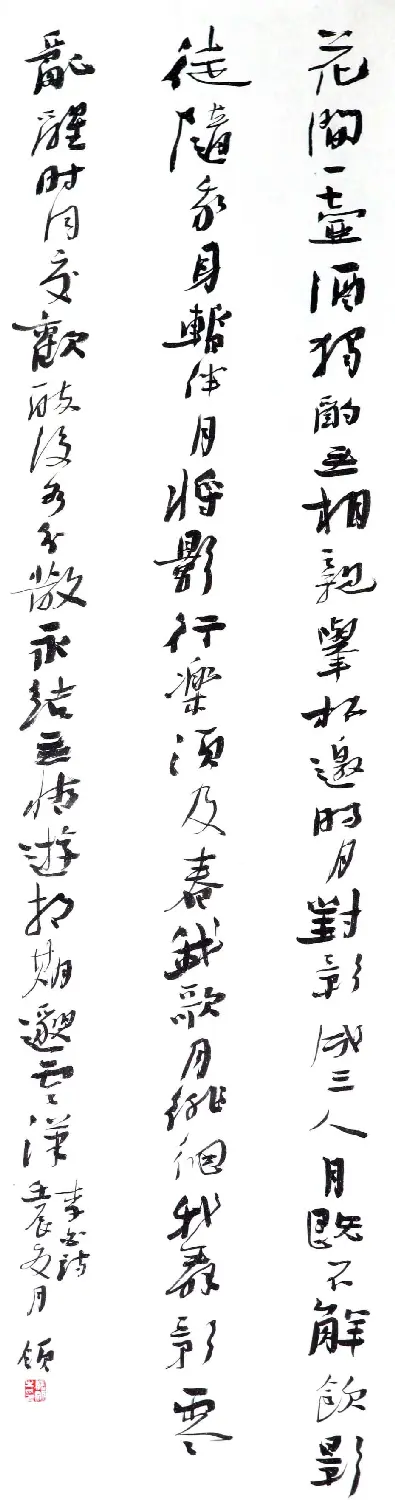 花間一壺酒獨酌無相親舉杯邀明月對影成三人月既不解飲影
徒隨我身暫伴月將影行樂須及春我歌月徘徊我舞影零
亂醒时同交歡醉後各分散永結無情遊相期邈雲漢
李白詩
壬辰夏月